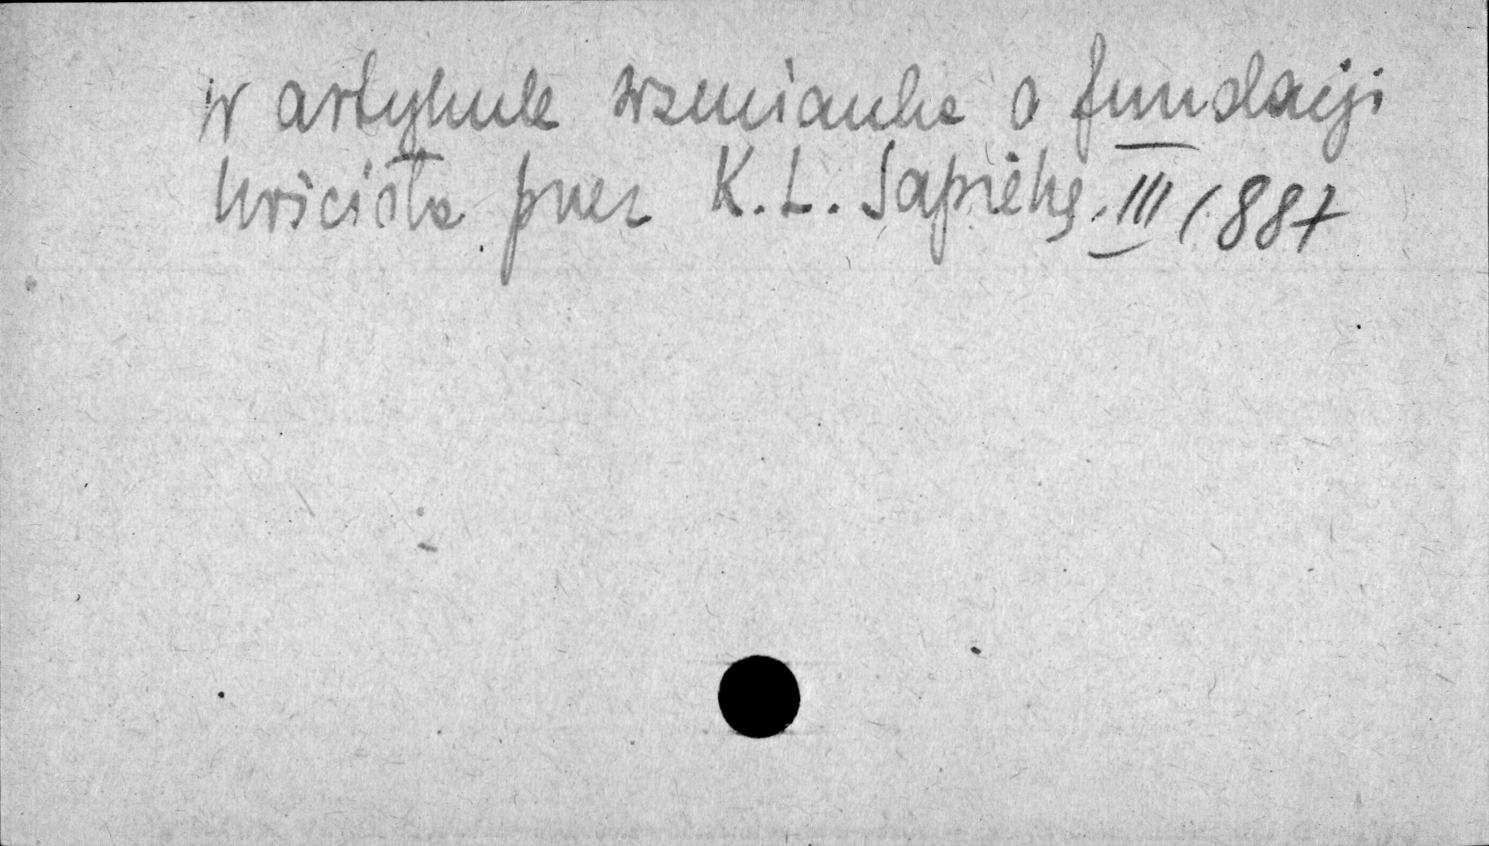 w artykule wzmianka o fundacji
kościoła przez K. L. Sapiehę. III (887